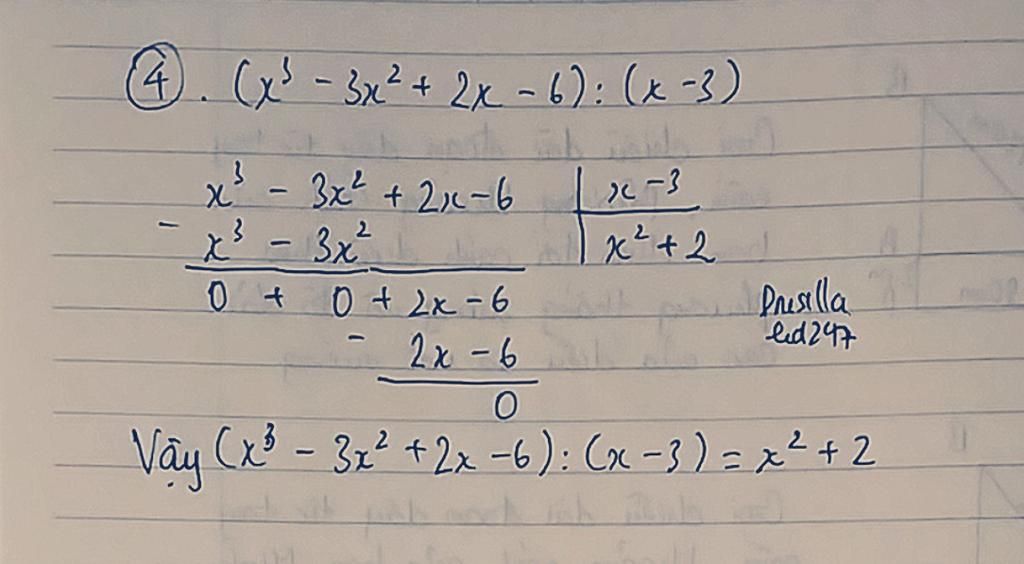 ④. (x³ - 3x² + 2x - 6) : (x - 3)
x³ - 3x² + 2x - 6 | x - 3
- x³ - 3x² | x² + 2
0 + 0 + 2x - 6
- 2x - 6
0
Prisilla
led247
Vậy (x³ - 3x² + 2x - 6) : (x - 3) = x² + 2